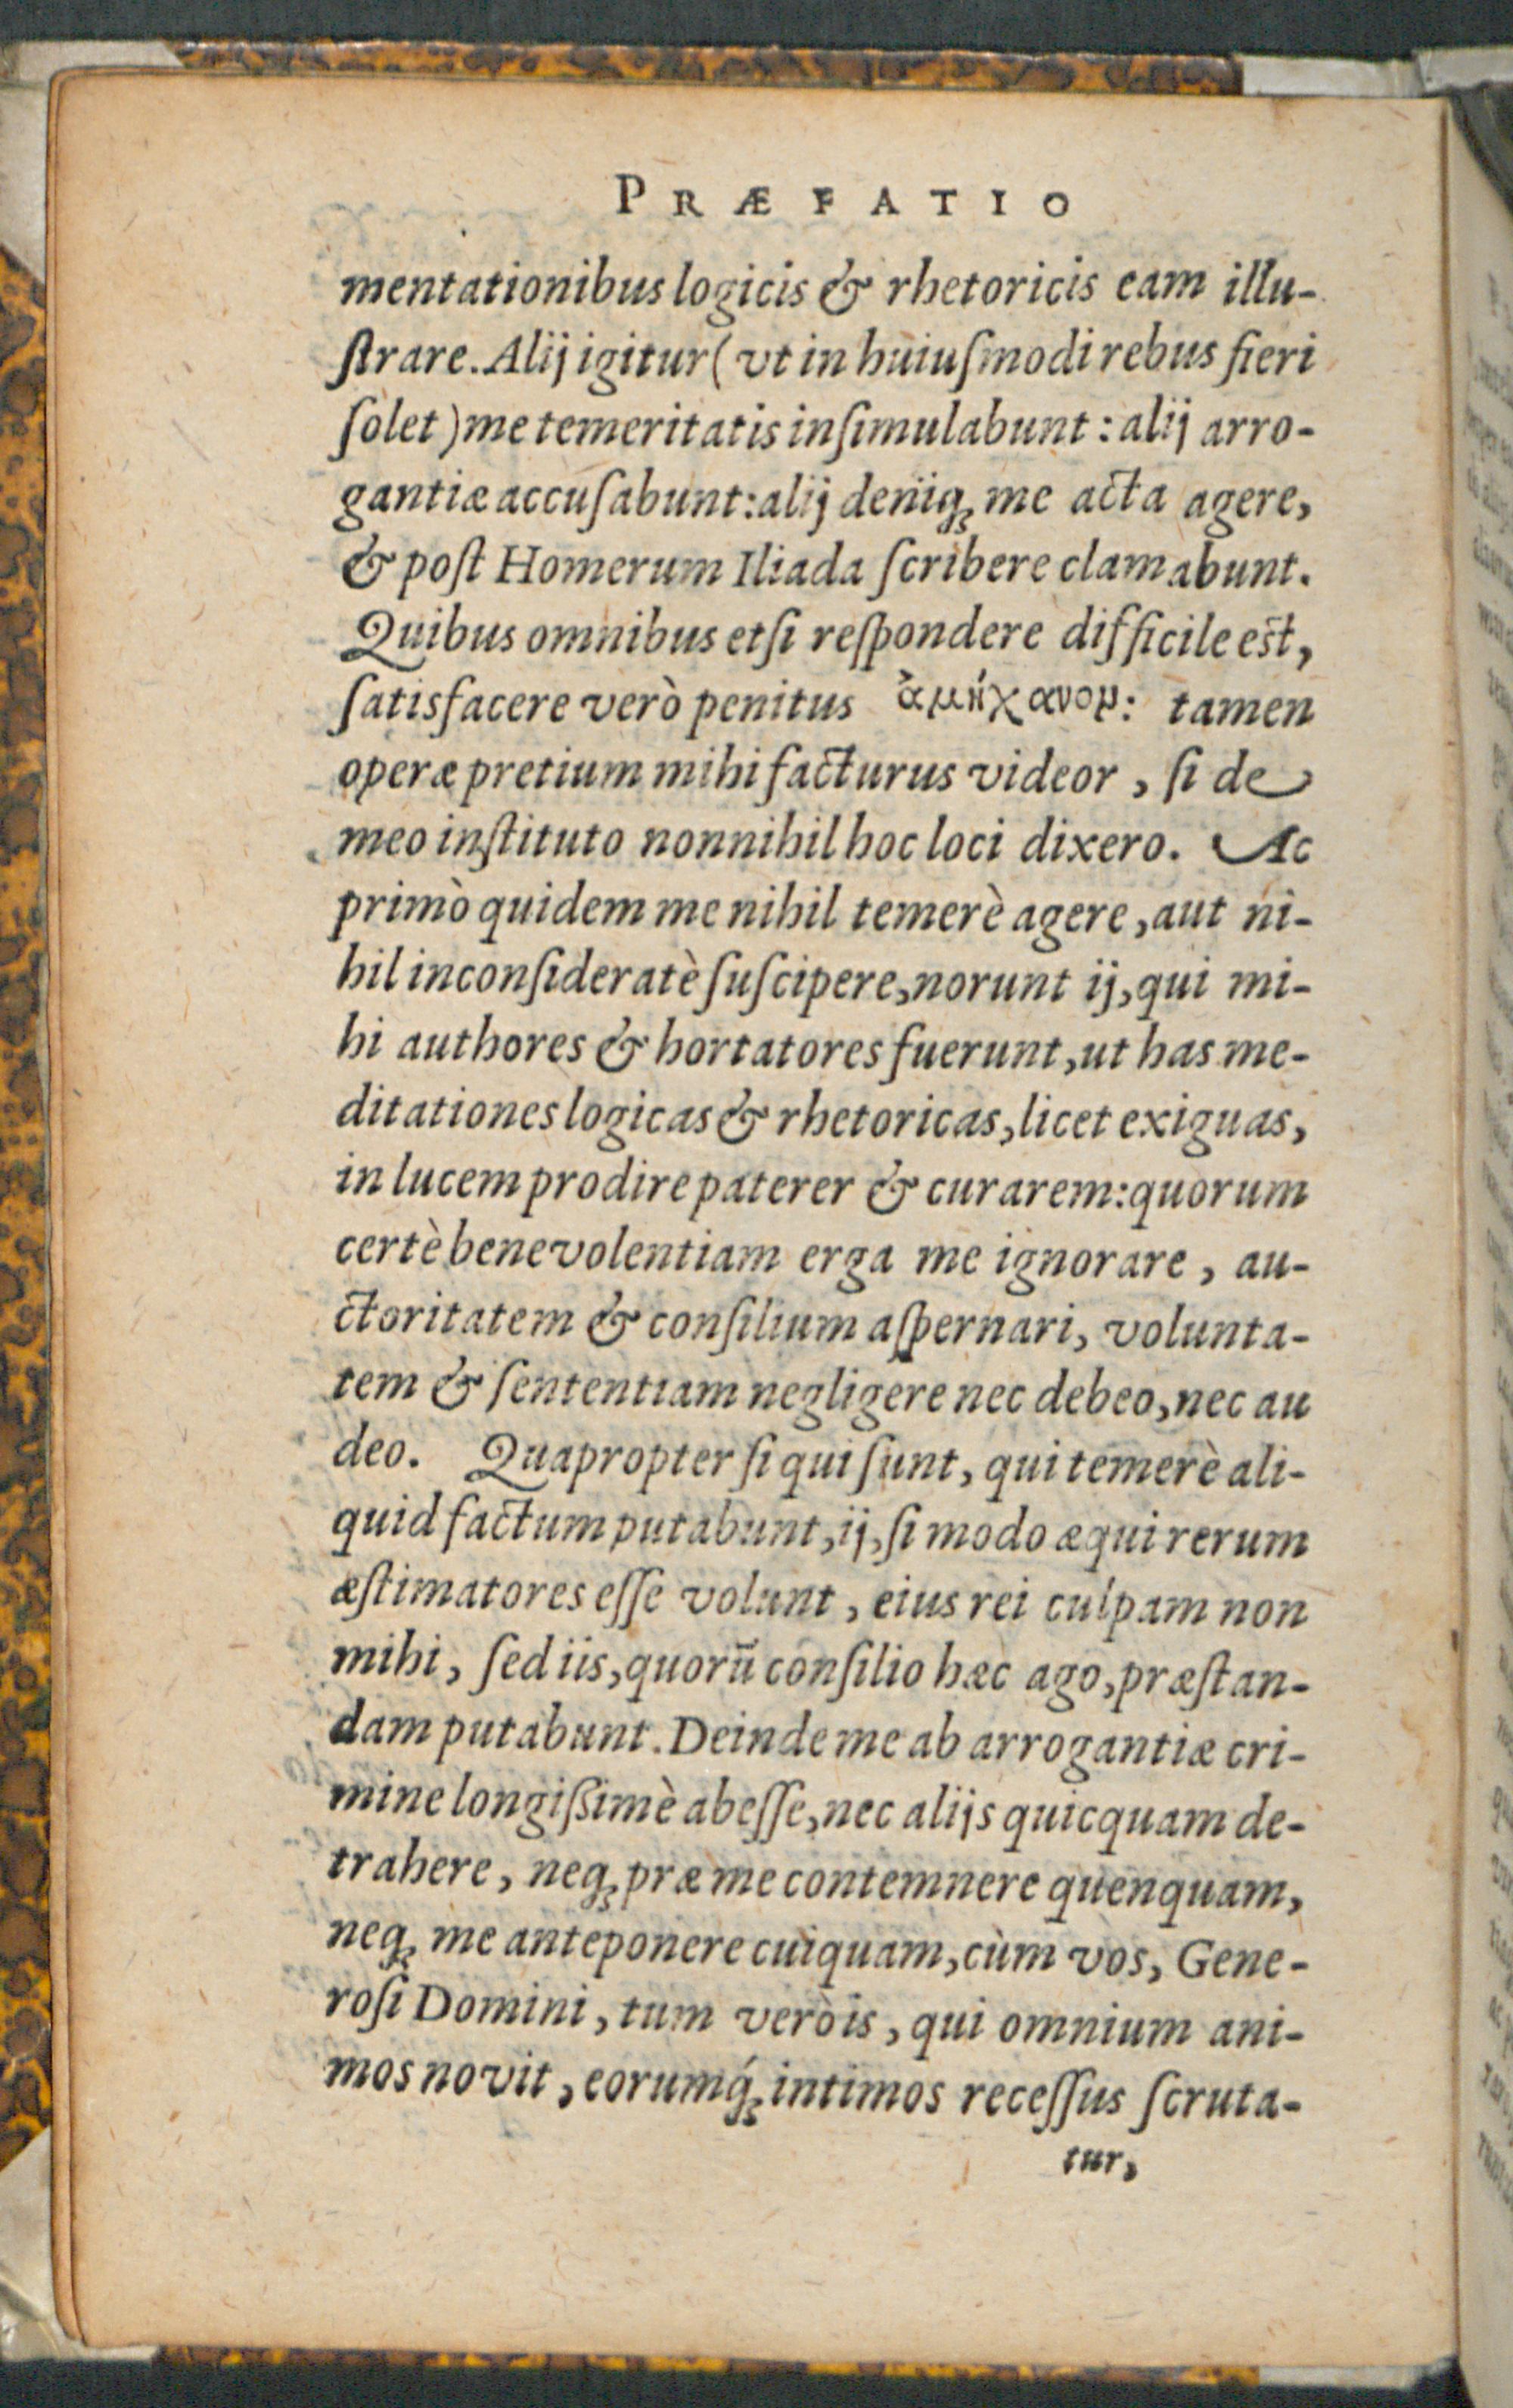 PRÆFATIO
mentationibus logicis & rhetoricis eam illu-
ſtrare. Alij igitur (vt in huiuſmodi rebus fieri
ſolet) me temeritatis inſimulabunt: alij arro-
gantiæ accuſabunt: alij deniqꝫ me acta agere,
& poſt Homerum Iliada ſcribere clamabunt.
Quibus omnibus etſi reſpondere difficile eſt,
ſatisfacere verò penitus ἀμήχανον: tamen
operæ pretium mihi facturus videor, ſi de
meo inſtituto nonnihil hoc loci dixero. Ac
primò quidem me nihil temerè agere, aut ni-
hil inconſideratè ſuſcipere, norunt ij, qui mi-
hi authores & hortatores fuerunt, ut has me-
ditationes logicas & rhetoricas, licet exiguas,
in lucem prodire paterer & curarem: quorum
certè benevolentiam erga me ignorare, au-
ctoritatem & conſilium aſpernari, volunta-
tem & ſententiam negligere nec debeo, nec au
deo. Quapropter ſi qui ſunt, qui temerè ali-
quid factum putabunt, ij, ſi modo æqui rerum
æſtimatores eſſe volunt, eius rei culpam non
mihi, ſed iis, quorũ conſilio hæc ago, præſtan-
dam putabunt. Deinde me ab arrogantiæ cri-
mine longiſsimè abeſſe, nec alijs quicquam de-
trahere, neqꝫ præ me contemnere quenquam,
neqꝫ me anteponere cuiquam, cùm vos, Gene-
roſi Domini, tum verò is, qui omnium ani-
mos novit, eorumq́ꝫ intimos receſſus ſcruta-
tur,